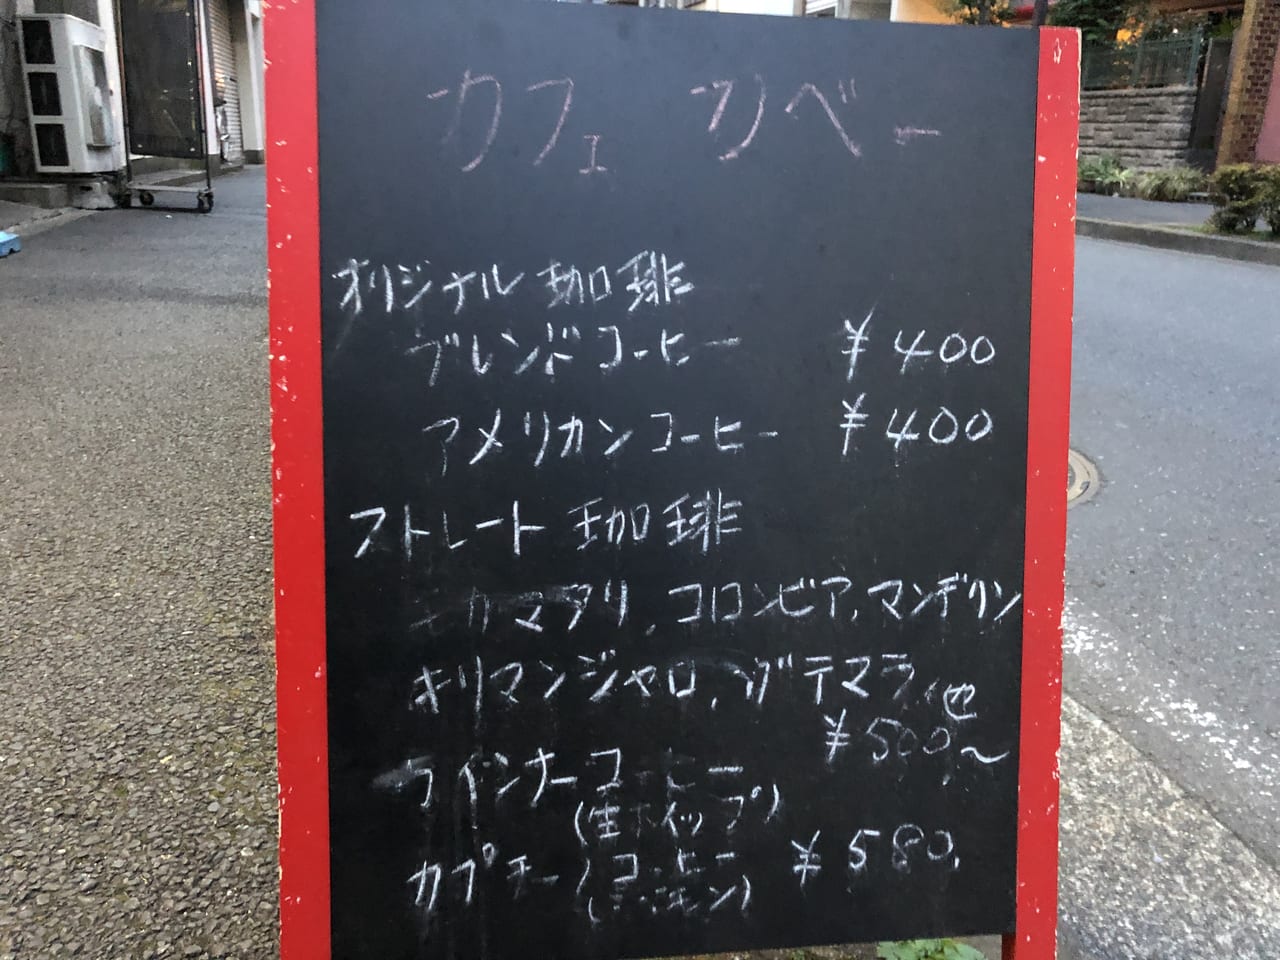 カフェ カベー
オリジナル 珈琲
ブレンドコーヒー ¥400
アメリカンコーヒー ¥400
ストレート 珈琲
マタリ, コロンビア, マンデリン
キリマンジャロ, ガテマラ, 他
¥500〜
ウインナーコーヒー
(生ホイップ)
カプチーノコーヒー ¥580